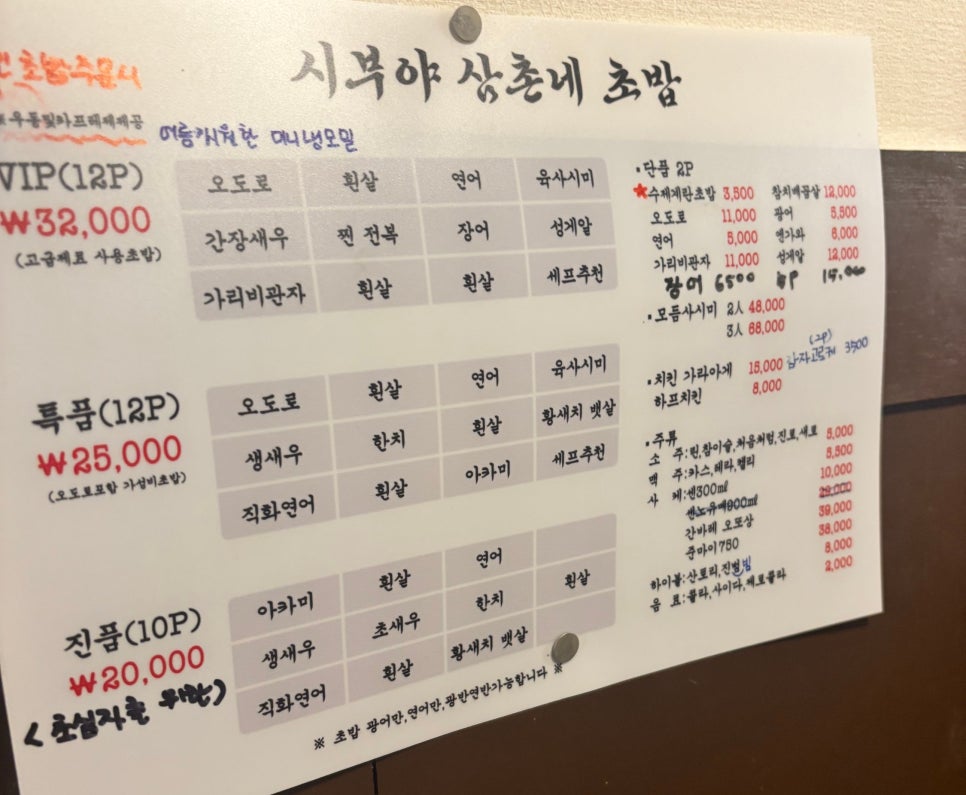 시부야 삼촌네 초밥
초밥주문시
※우동및카프레제제공
여름개시원한 미니냉모밀
VIP(12P)
₩32,000
(고급재료 사용초밥)
오도로 흰살 연어 육사시미
간장새우 찐 전복 장어 성게알
가리비관자 흰살 흰살 셰프추천
특품(12P)
₩25,000
(오도로포함 가성비초밥)
오도로 흰살 연어 육사시미
생새우 한치 흰살 황새치 뱃살
직화연어 흰살 아카미 셰프추천
진품(10P)
₩20,000
<초심자를 위한>
아카미 흰살 연어
생새우 초새우 한치 흰살
직화연어 흰살 황새치 뱃살
※ 초밥 광어만,연어만,광반연반가능합니다 ※
▪단품 2P
★수제계란초밥 3,500 참치배꼽살 12,000
오도로 11,000 광어 5,500
연어 5,000 엔가와 6,000
가리비관자 11,000 성게알 12,000
장어 6500
▪모듬사시미 2人 48,000
3人 68,000
▪치킨 가라아게 15,000
하프치킨 8,000
(2P)
감자고로케 3500
▪주류
소 주:린,참이슬,처음처럼,진로,새로 5,000
맥 주:카스,테라,켈리 5,500
사 케:센300ml 10,000
센노유메900ml 29,000
간바레 오또상 39,000
준마이750 38,000
하이볼:산토리,진빔 8,000
음 료:콜라,사이다,제로콜라 2,000